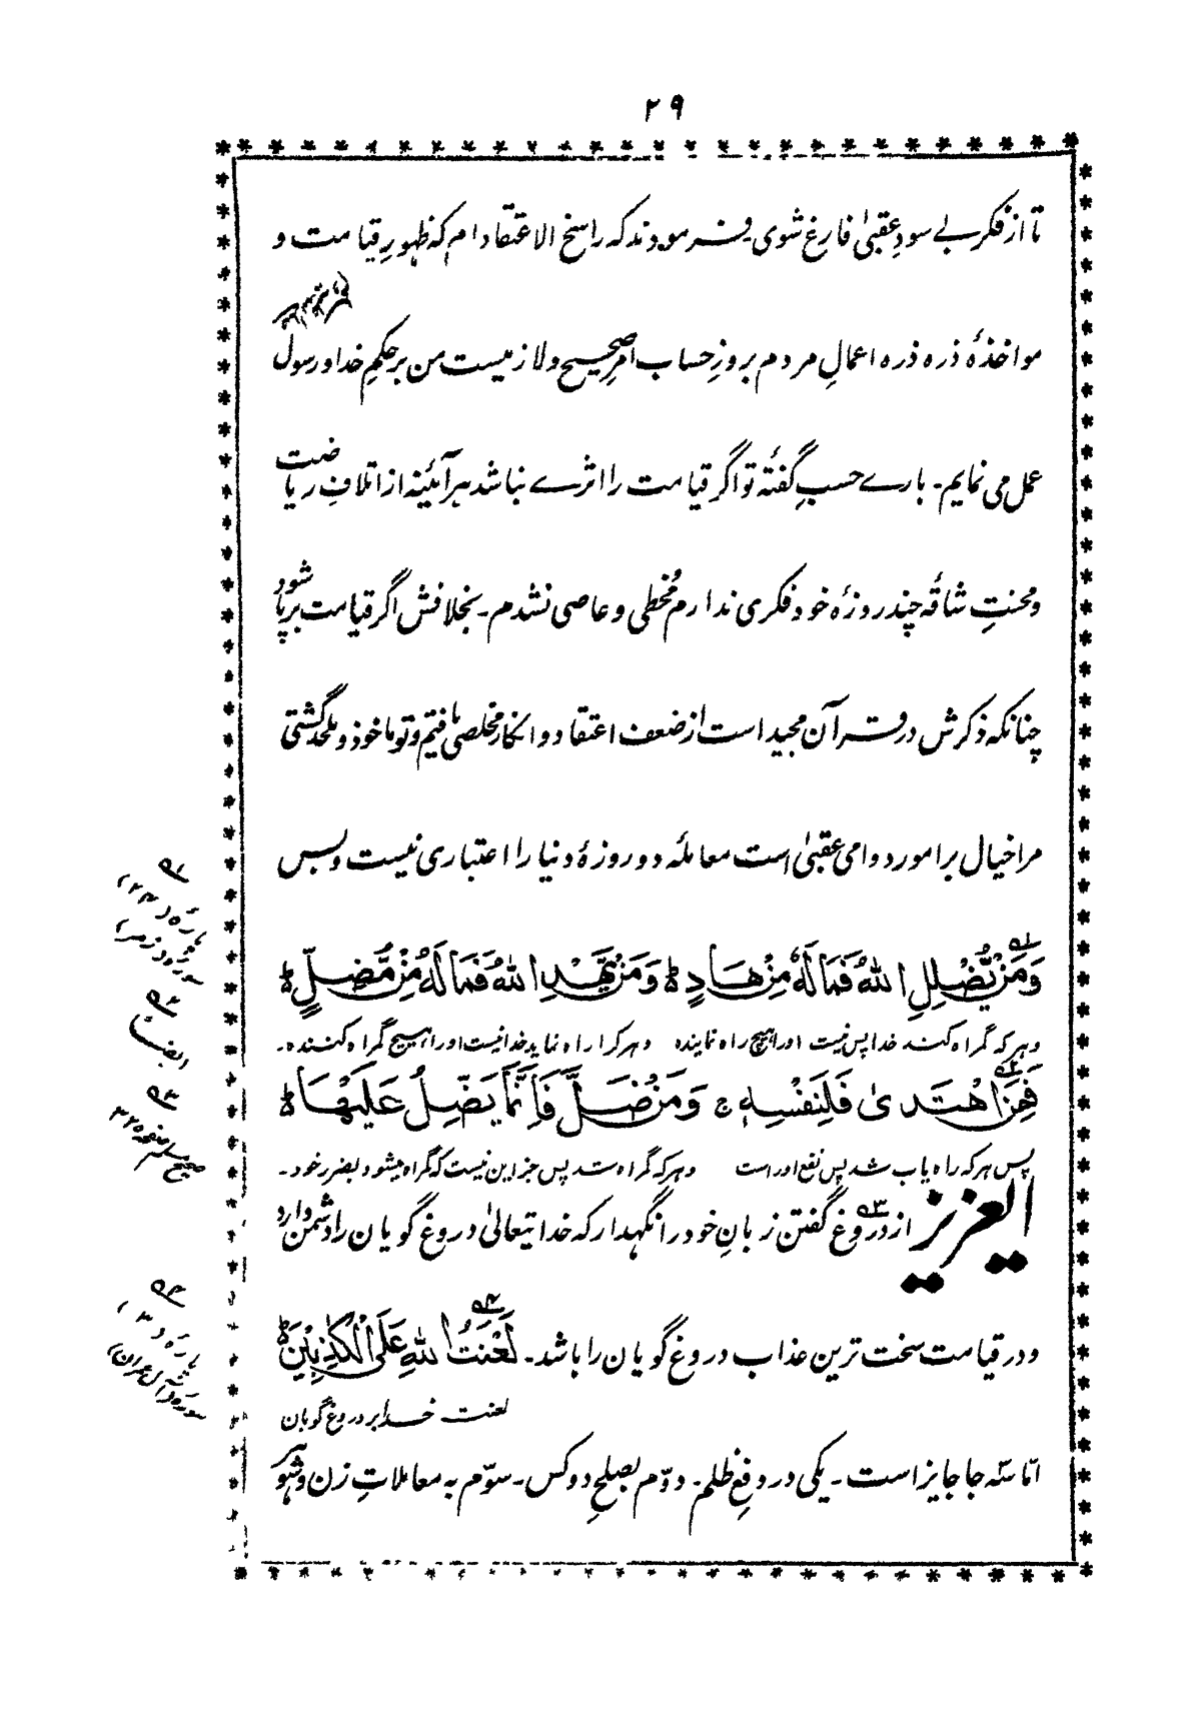 ۲۹
تا از فکر بے سودِ عقبیٰ فارغ شوی۔ فرمودند که راسخ الاعتقاد ام که ظهورِ قیامت و
مواخذهٔ ذره ذره اعمالِ مردم بروزِ حساب امرِ صحیح و لازمیست من بر حکمِ خدا و رسول
عمل می نمایم۔ بارے حسبِ گفتهٔ تو اگر قیامت را اثرے نباشد هر آئینه از اتلافِ ریاضت
و محنتِ شاقّه چند روزهٔ خود فکری ندارم مُخطی و عاصی نشدم۔ بخلافش اگر قیامت برپا شود
چنانکه ذکرش در قرآن مجید است از ضعف اعتقاد و انکار مخلصی یافتیم و تو ماخوذ و ملحد گشتی
مرا خیال بر امورِ دوامی عقبیٰ است معاملهٔ دو روزهٔ دنیا را اعتباری نیست و بس
وَمَنْ یُّضْلِلِ اللهُ فَمَالَهٗ مِنْ هَادٍ ۵ وَمَنْ یَّهْدِ اللهُ فَمَالَهٗ مِنْ مُّضِلٍّ ط
و هر که گمراه کند خدا پس نیست اورا هیچ راه نماینده و هر کرا راه نماید خدا نیست اورا هیچ گمراه کننده۔
فَمَنِ اهْتَدیٰ فَلِنَفْسِهٖ ج وَمَنْ ضَلَّ فَاِنَّمَا یَضِلُّ عَلَیْهَا ط
پس هر که راه یاب شد پس نفع اوراست و هر که گمراه شد پس جز این نیست که گمراه میشود بضرر خود۔
العزیز از دروغ گفتن زبانِ خود را نگهدار که خدا تعالیٰ دروغ گویان را دشمن دارد
و در قیامت سخت ترین عذاب دروغ گویان را باشد۔ لَعْنَتُ اللهِ عَلَی الْکٰذِبِیْنَ ط
لعنت خدا بر دروغ گویان
امّا سه جا جایز است۔ یکی در دفعِ ظلم۔ دوّم بصلحِ دو کس۔ سوّم به معاملاتِ زن و شوهر
پارهٔ (۲۳)
سورهٔ (زمر)
ایضاً
صحیح مسلم صفحه ۳۲۵
پارهٔ (۳)
سورهٔ (آل عمران)